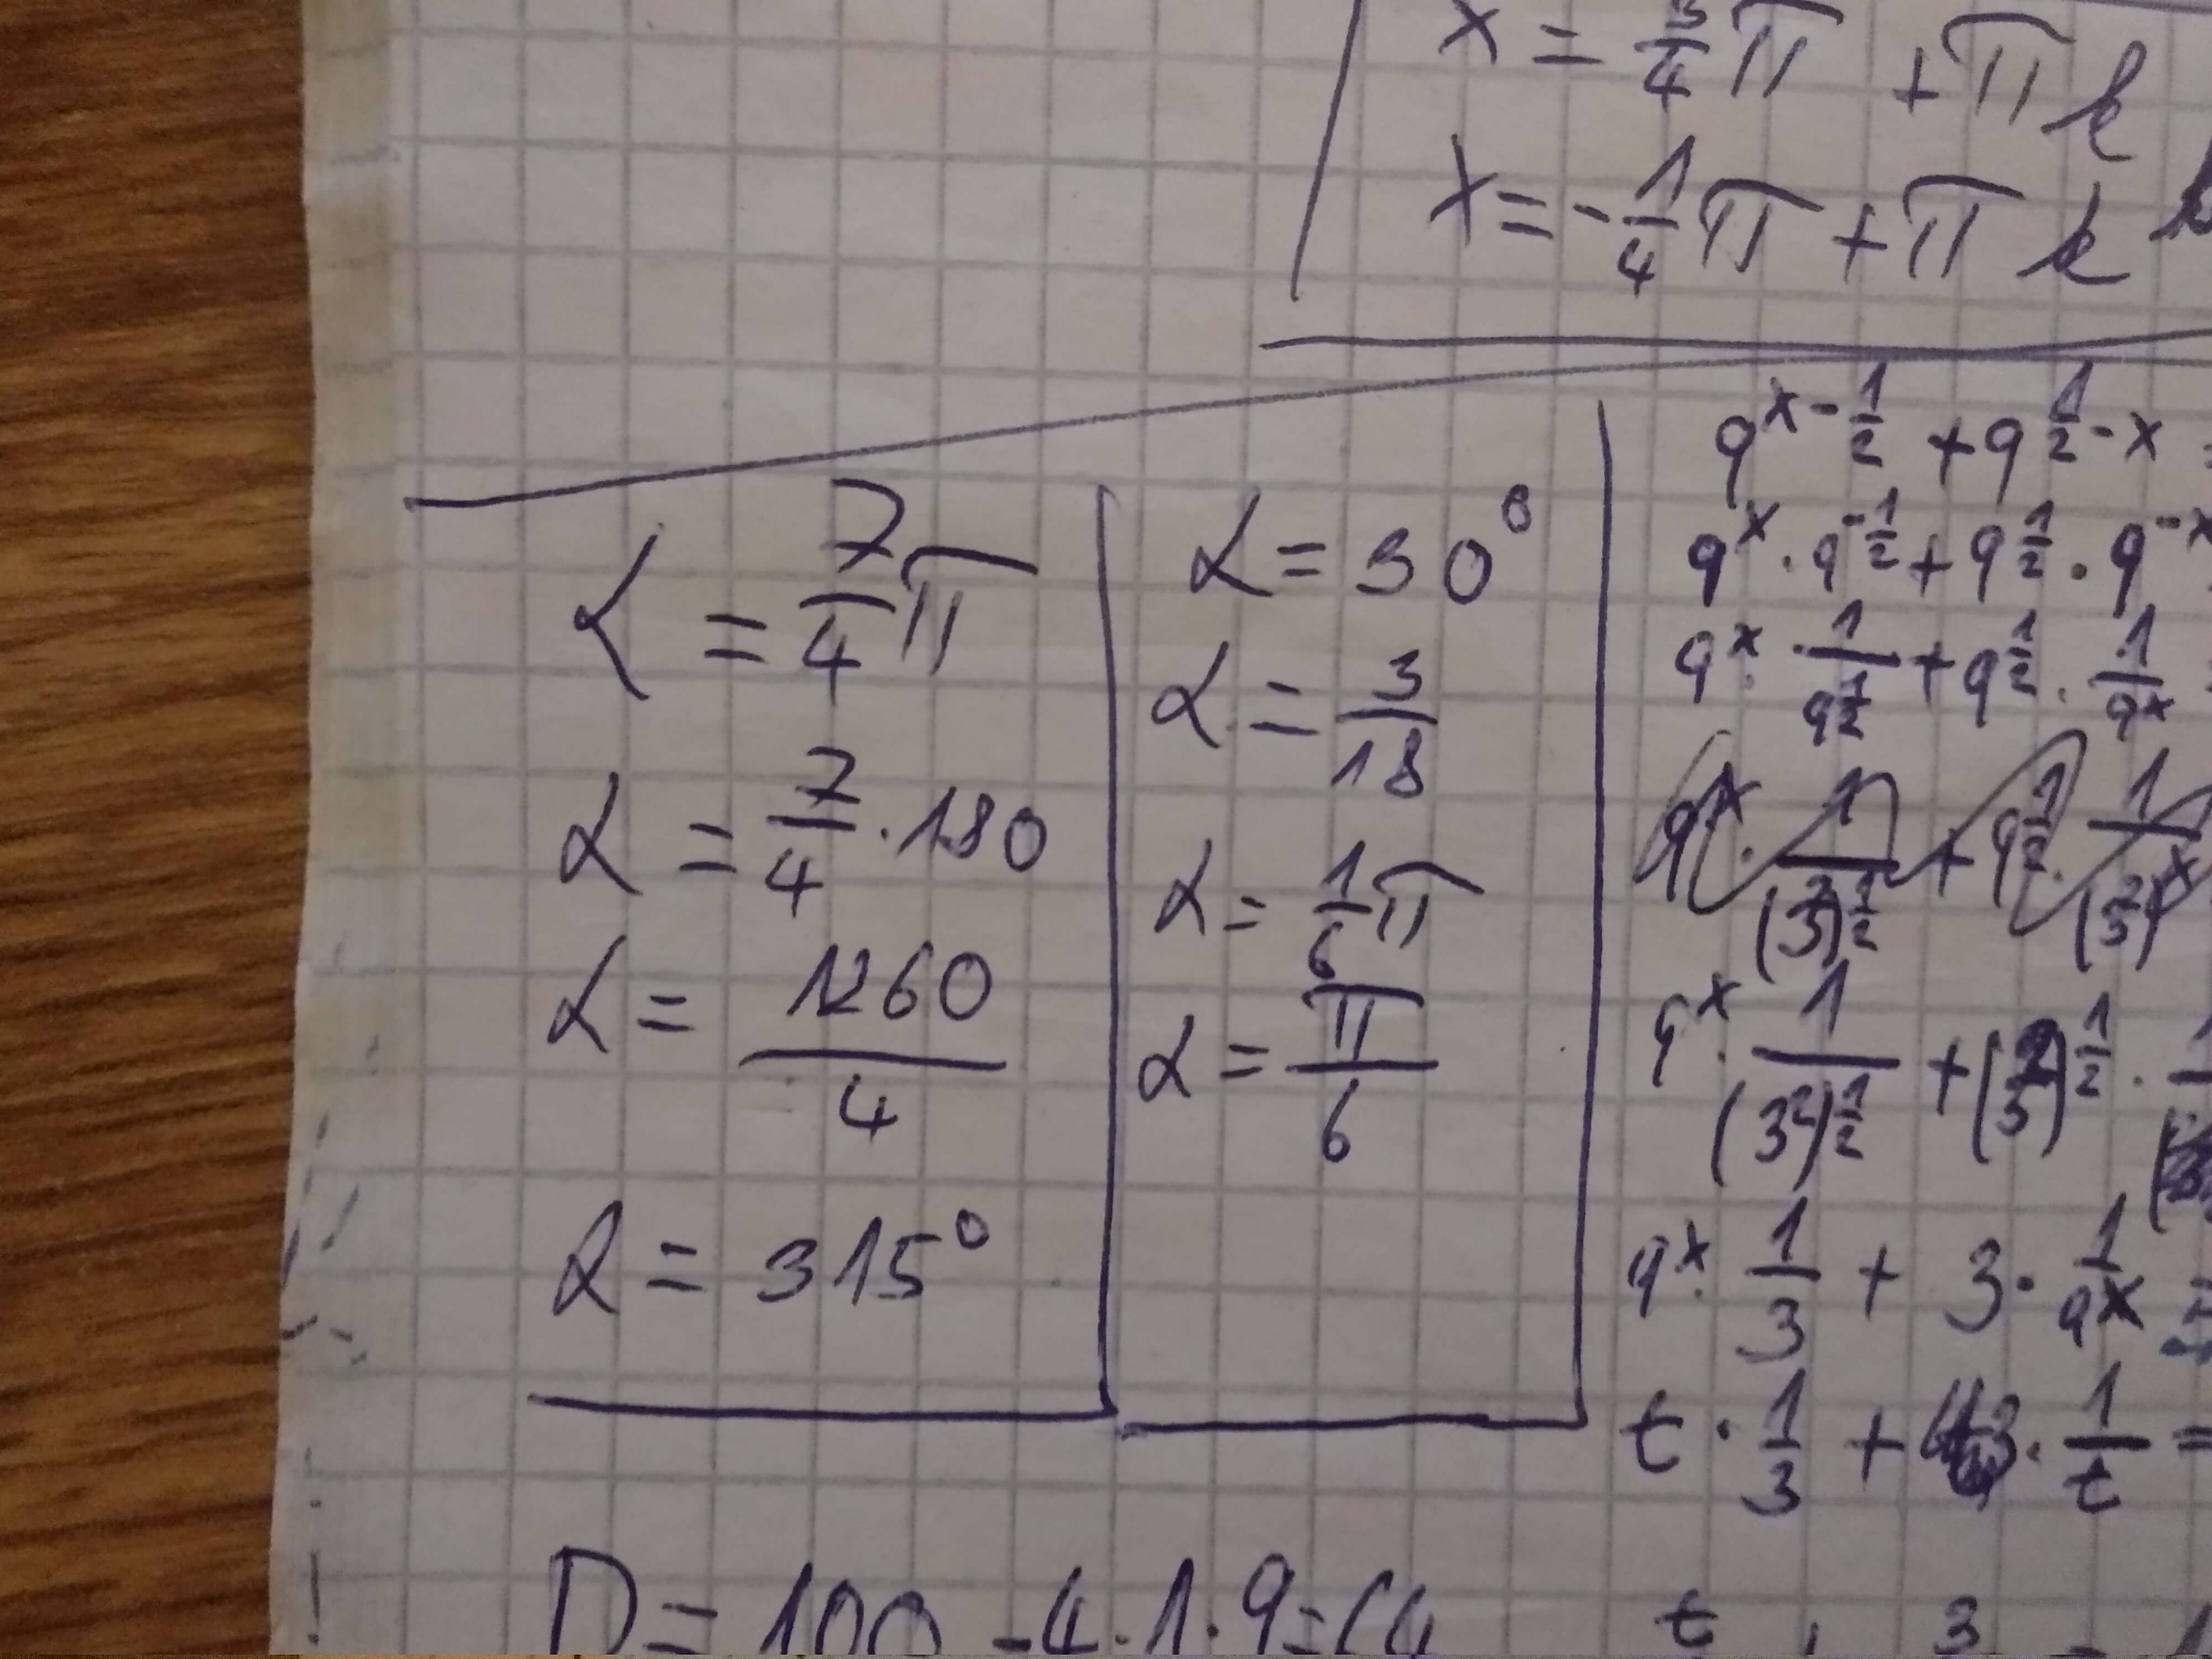 x = 3/4 π + π k
x = -1/4 π + π k
α = 7/4 π
α = 7/4 · 180
α = 1260/4
α = 315°
α = 30°
α = 3/18
α = 1/6 π
α = π/6
9^(x - 1/2) + 9^(1/2 - x)
9^x · 9^(-1/2) + 9^(1/2) · 9^(-x)
9^x · 1/9^(1/2) + 9^(1/2) · 1/9^x
9^x · 1/(3^2)^(1/2) + 9^(1/2) · 1/(3^2)^x
9^x · 1/(3^2)^(1/2) + (3^2)^(1/2) ·
9^x · 1/3 + 3 · 1/9^x =
t · 1/3 + 3 · 1/t =
D = 100 - 4 · 1 · 9 = 64
t 3